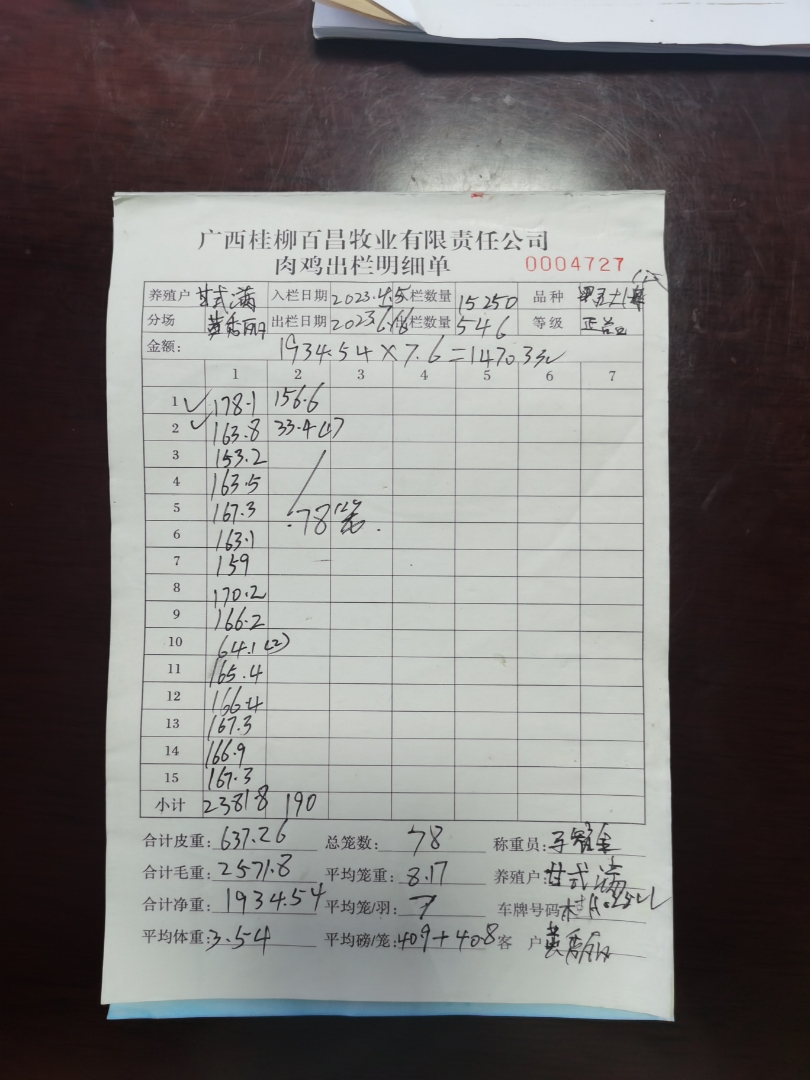 广西桂柳百昌牧业有限责任公司
肉鸡出栏明细单 0004727
养殖户 甘式满 入栏日期 2023.4.5 栏数量 15250 品种
分场 黄秀丽 出栏日期 2023.6.16 栏数量 546 等级 正品
金额: 1934.54×7.6=14703元
1 2 3 4 5 6 7
1 178.1 156.6
2 163.8 33.4(1)
3 153.2
4 163.5
5 167.3 78笼
6 163.1
7 159
8 170.2
9 166.2
10 64.1(2)
11 165.4
12 166.4
13 167.3
14 166.9
15 167.3
小计 2381.8 190
合计皮重: 637.26 总笼数: 78 称重员:
合计毛重: 2571.8 平均笼重: 8.17 养殖户: 甘式满
合计净重: 1934.54 平均笼/羽: 7 车牌号码
平均体重: 3.54 平均磅/笼: 409+408 客户 黄秀丽